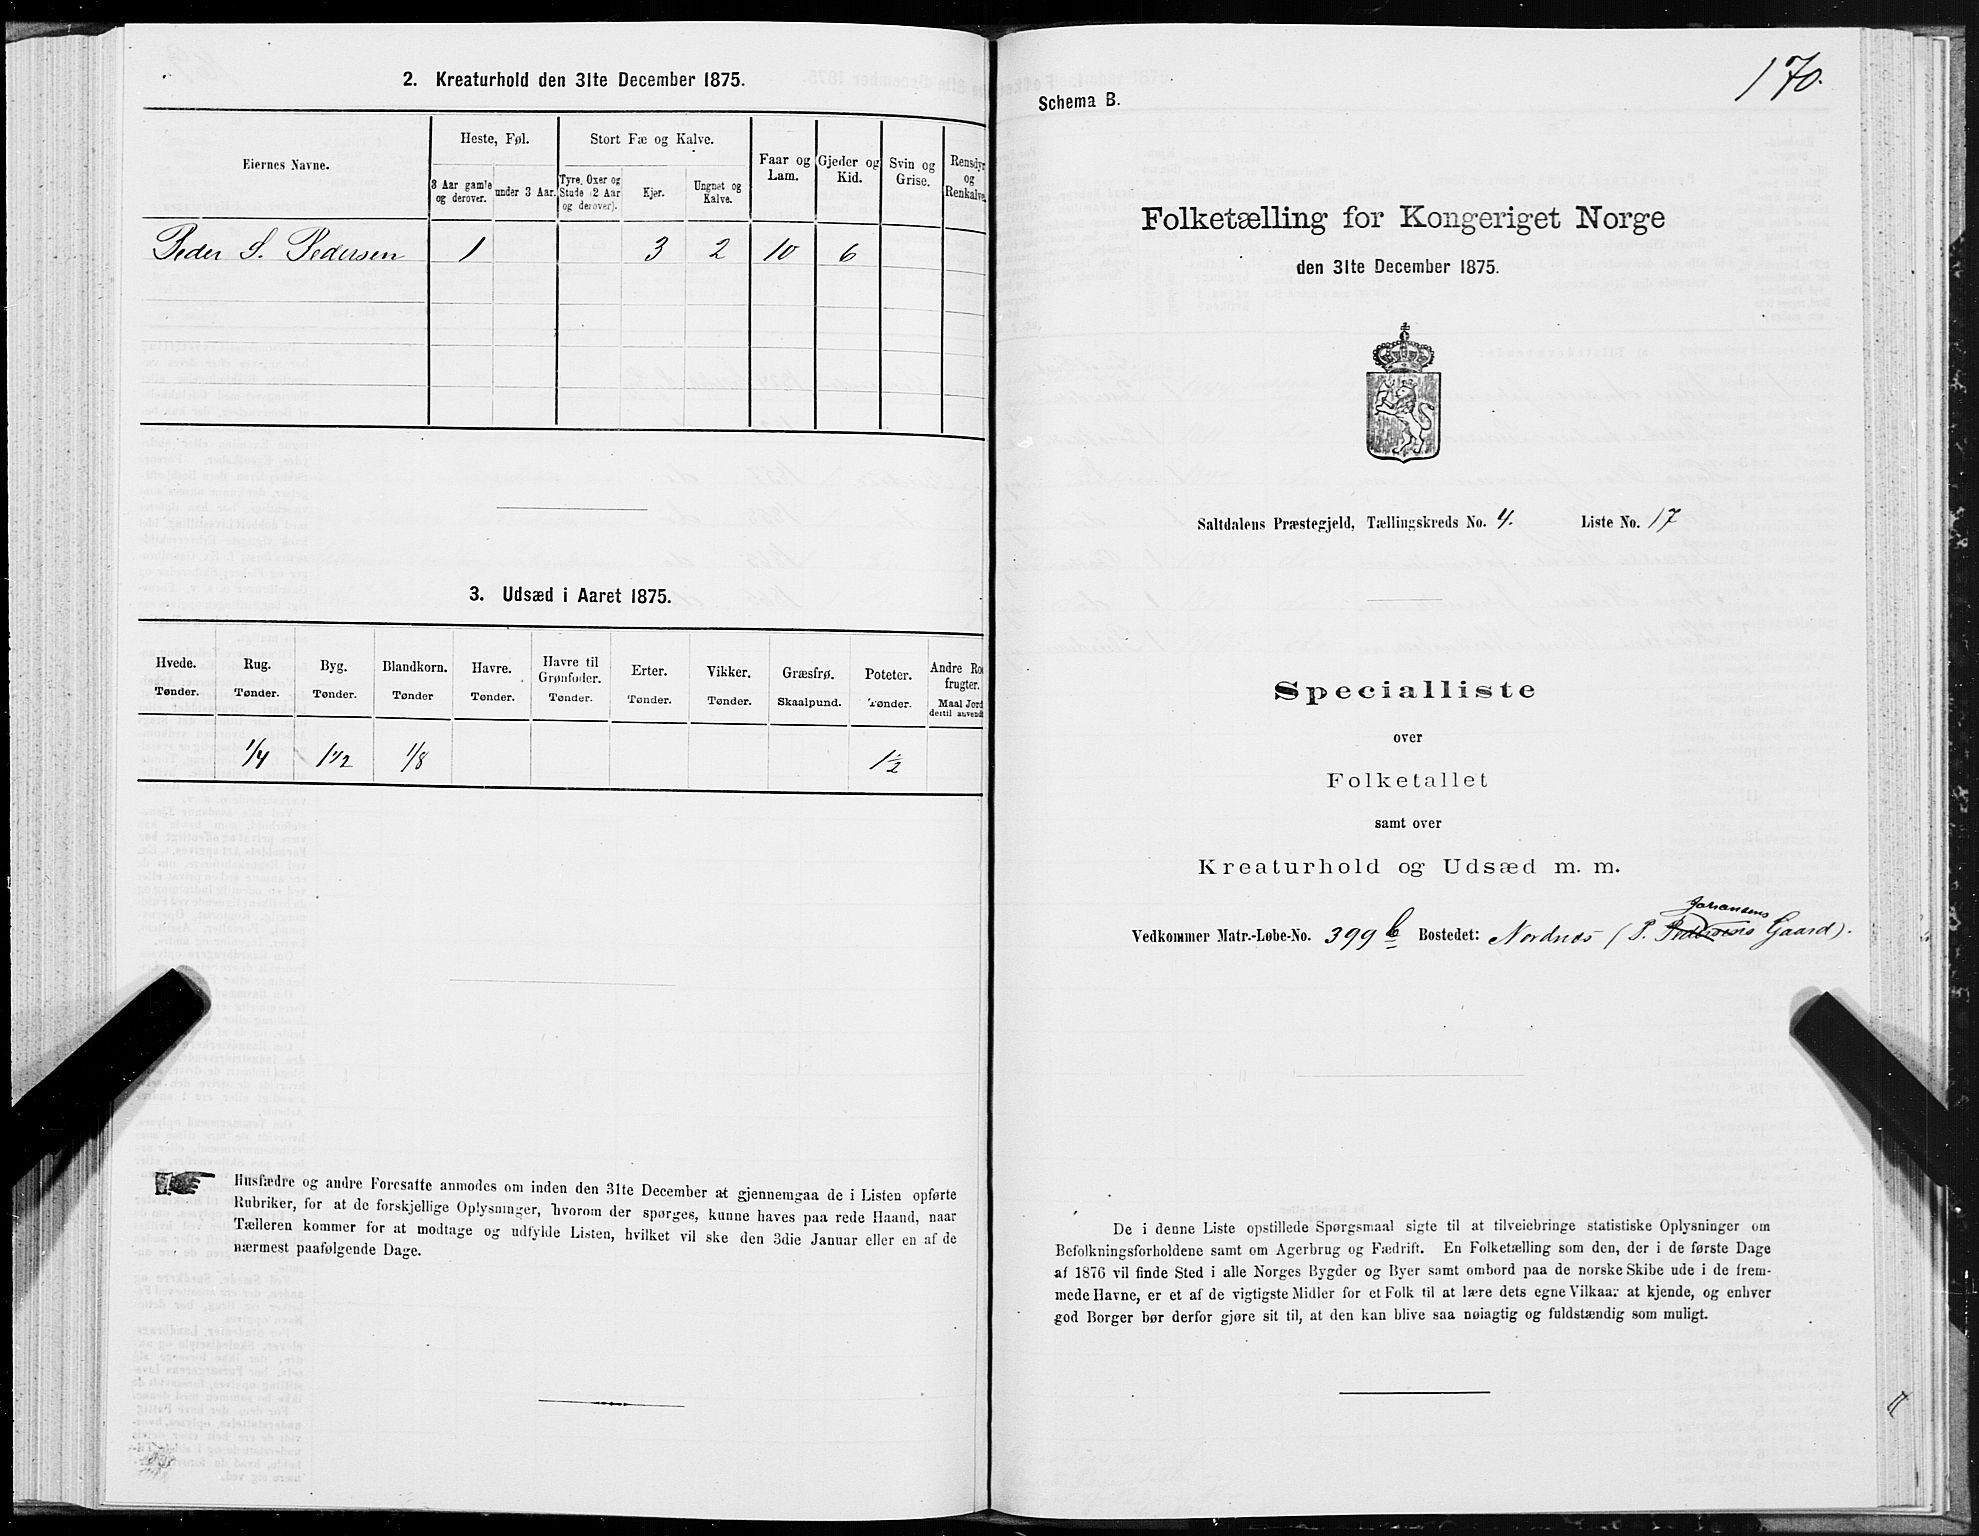 2. Kreaturhold den 31te December 1875.
Eiernes Navne.
Heste, Føl.
Stort Fæ og Kalve.
Faar og Lam.
Gjeder og Kid.
Svin og Grise.
Rensdyr og Renkalve.
3 Aar gamle og derover.
under 3 Aar.
Tyre, Oxer og Stude (2 Aar og derover).
Kjør.
Ungnet og Kalve.
Peder S. Pedersen 1 3 2 10 6
3. Udsæd i Aaret 1875.
Hvede. Rug. Byg. Blandkorn. Havre. Havre til Grønfoder. Erter. Vikker. Græsfrø. Poteter. Andre Ro frugter.
Tønder. Tønder. Tønder. Tønder Tønder. Tønder. Tønder. Tønder. Skaalpund. Tønder. Maal Jord dertil anvendt
1/4 1 1/2 1/8 1 1/2
Husfædre og andre Foresatte anmodes om inden den 31te December at gjennemgaa de i Listen opførte
Rubriker, for at de forskjellige Oplysninger, hvorom der spørges, kunne haves paa rede Haand, naar
Tælleren kommer for at modtage og udfylde Listen, hvilket vil ske den 3die Januar eller en af de
nærmest paafølgende Dage.
170.
Schema B.
Folketælling for Kongeriget Norge
den 31te December 1875.
Saltdalens Præstegjeld, Tællingskreds No. 4. Liste No. 17
Specialliste
over
Folketallet
samt over
Kreaturhold og Udsæd m. m.
Johansens
Vedkommer Matr.-Løbe-No. 399 b Bostedet: Nordnes (P. Pedersens Gaard).
De i denne Liste opstillede Spørgsmaal sigte til at tilveiebringe statistiske Oplysninger om
Befolkningsforholdene samt om Agerbrug og Fædrift. En Folketælling som den, der i de første Dage
af 1876 vil finde Sted i alle Norges Bygder og Byer samt ombord paa de norske Skibe ude i de frem-
mede Havne, er et af de vigtigste Midler for et Folk til at lære dets egne Vilkaar at kjende, og enhver
god Borger bør derfor gjøre sit til, at den kan blive saa nøiagtig og fuldstændig som muligt.